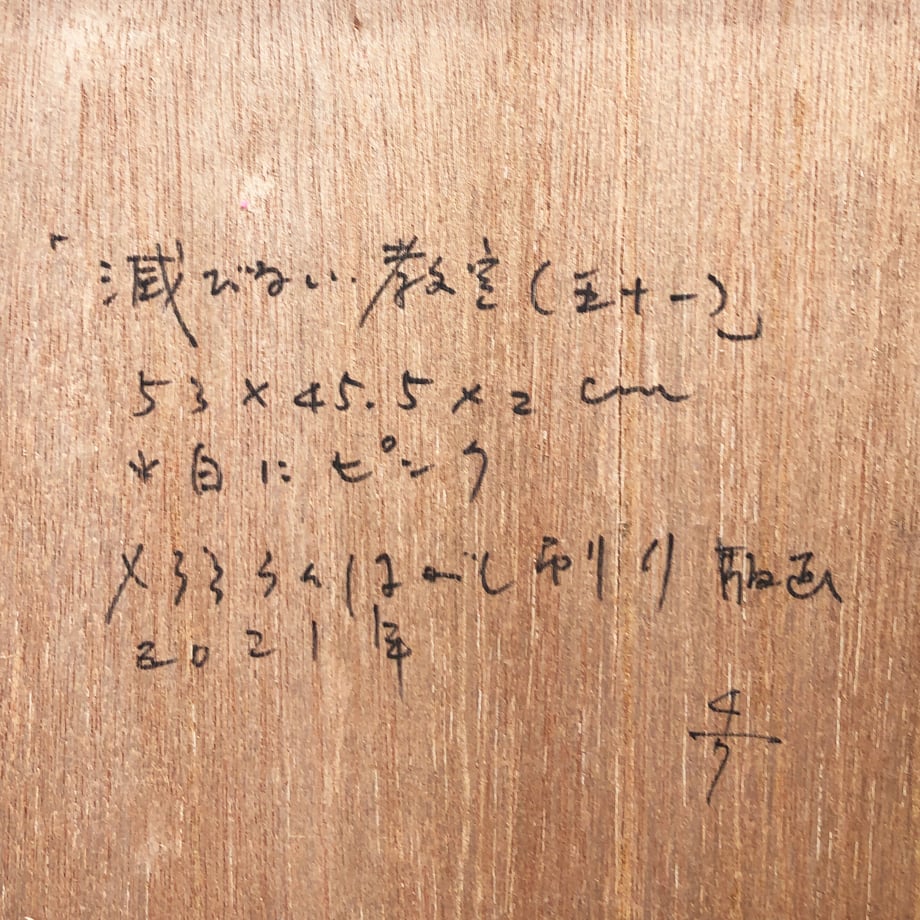 「滅びない教室(五十一)」
53×45.5×2cm
*白にピンク
はがし刷り版画
2021年
4/7